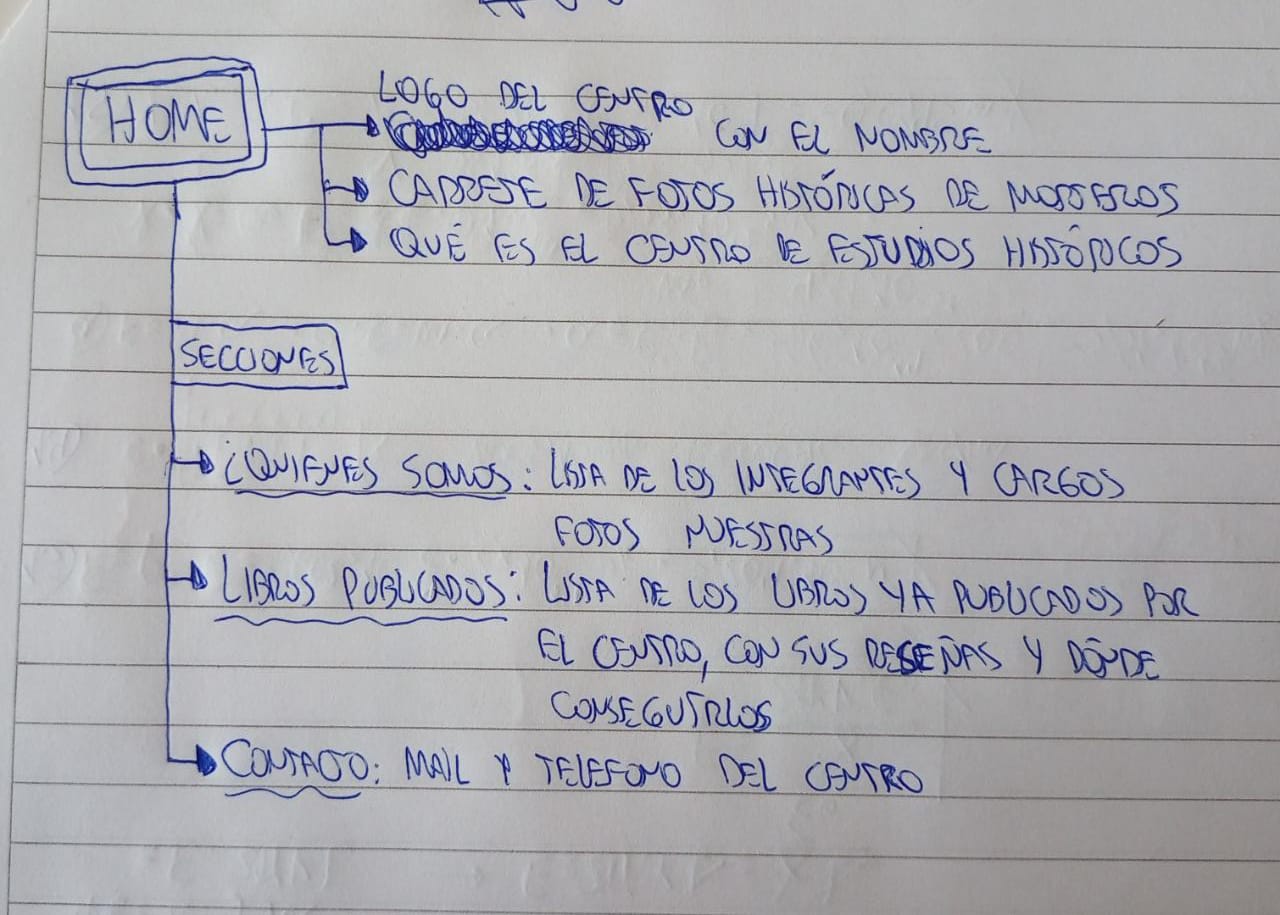 HOME
LOGO DEL CENTRO
CON EL NOMBRE
CARRETE DE FOTOS HISTÓRICAS DE MORTEROS
QUÉ ES EL CENTRO DE ESTUDIOS HISTÓRICOS
SECCIONES
¿QUIENES SOMOS: LISTA DE LOS INTEGRANTES Y CARGOS
FOTOS NUESTRAS
LIBROS PUBLICADOS: LISTA DE LOS LIBROS YA PUBLICADOS POR
EL CENTRO, CON SUS RESEÑAS Y DÓNDE
CONSEGUIRLOS
CONTACTO: MAIL Y TELEFONO DEL CENTRO